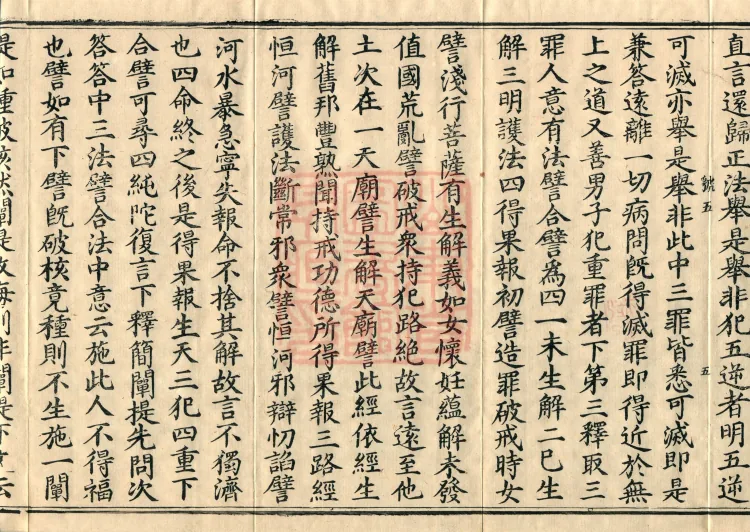 直言還歸正法舉是舉非犯五逆者明五逆
可滅亦舉是舉非此中三罪皆悉可滅即是
兼答遠離一切病問既得滅罪即得近於無
上之道又善男子犯重罪者下第三釋取三
罪人意有法譬合譬為四一未生解二已生
解三明護法四得果報初譬造罪破戒時女
譬淺行菩薩有生解義如女懷妊蘊解未發
值國荒亂譬破戒眾持犯路絕故言遠至他
土次在一天廟譬生解天廟譬此經依經生
解舊邦豐熟聞持戒功德所得果報三路經
恒河譬護法斷常邪眾譬恒河邪辯忉諂譬
河水暴急寧失報命不捨其解故言不獨濟
也四命終之後是得果報生天三犯四重下
合譬可尋四純陀復言下釋簡闡提先問次
答答中三法譬合法中意云施此人不得福
也譬如有下譬既破核竟種則不生施一闡
五